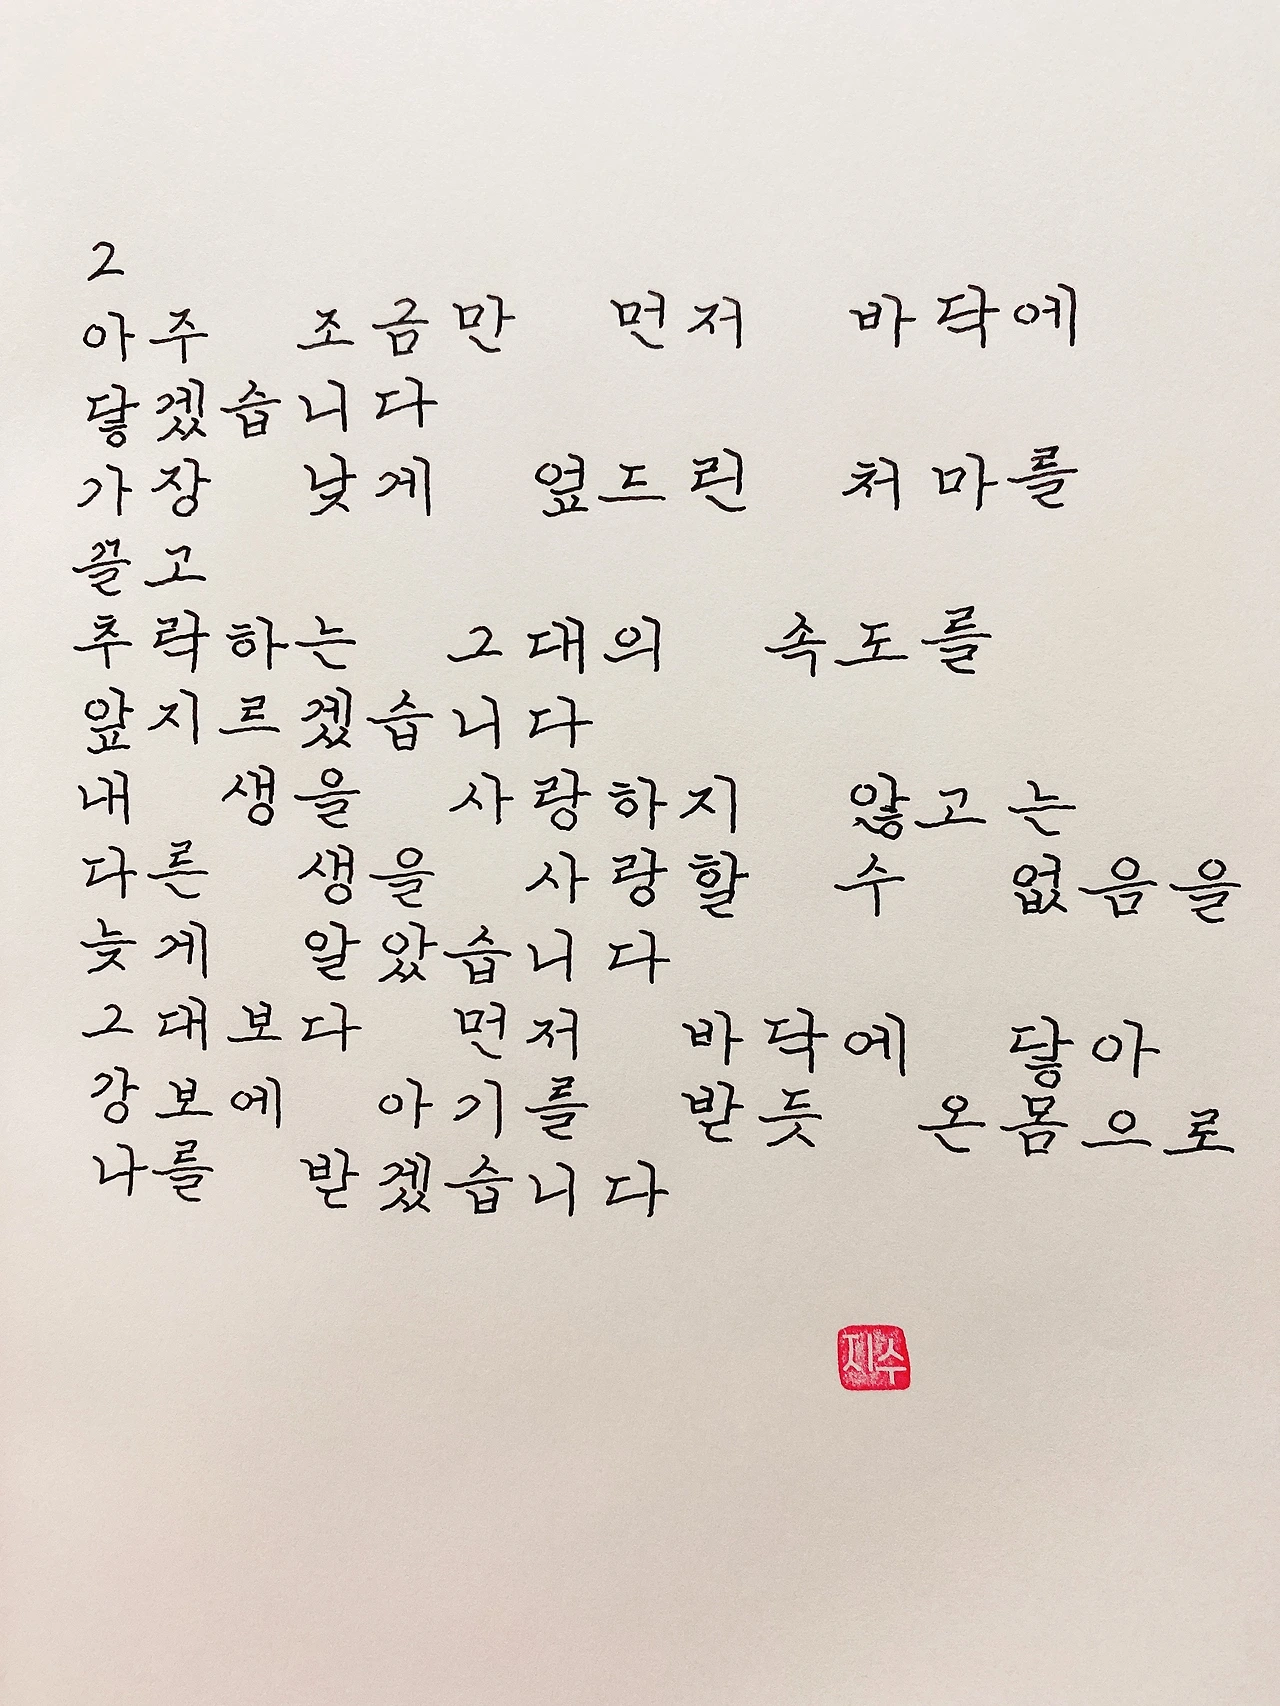 2
아주 조금만 먼저 바닥에
닿겠습니다
가장 낮게 엎드린 처마를
끌고
추락하는 그대의 속도를
앞지르겠습니다
내 생을 사랑하지 않고는
다른 생을 사랑할 수 없음을
늦게 알았습니다
그대보다 먼저 바닥에 닿아
강보에 아기를 받듯 온몸으로
나를 받겠습니다
지수